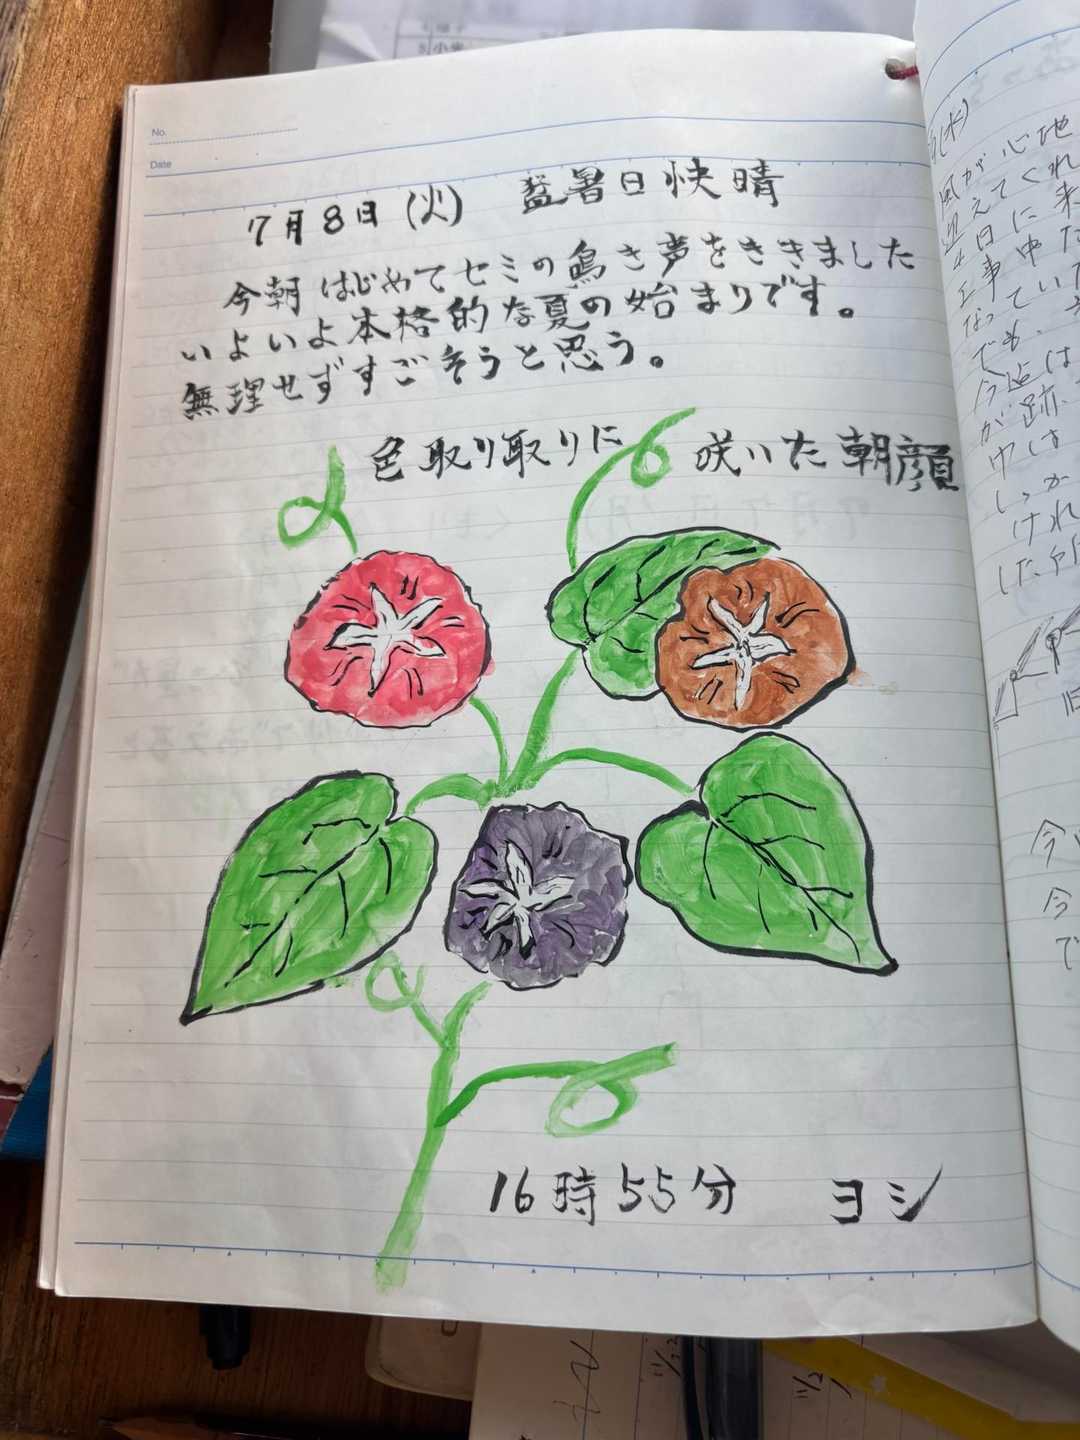 No.
Date
7月8日(火) 猛暑日快晴
今朝はじめてセミの鳥き夢をききました
いよいよ本格的な夏の始まりです。
無理せずすごそうと思う。
色取り取りに 咲いた朝顔
16時55分 ヨシ
(水)
風が心地
迎えてくれ
4日に来
工事中だ
なっていて
でも、
今迄は
が跡、
中は
しっか
けれ
した
今
今
で